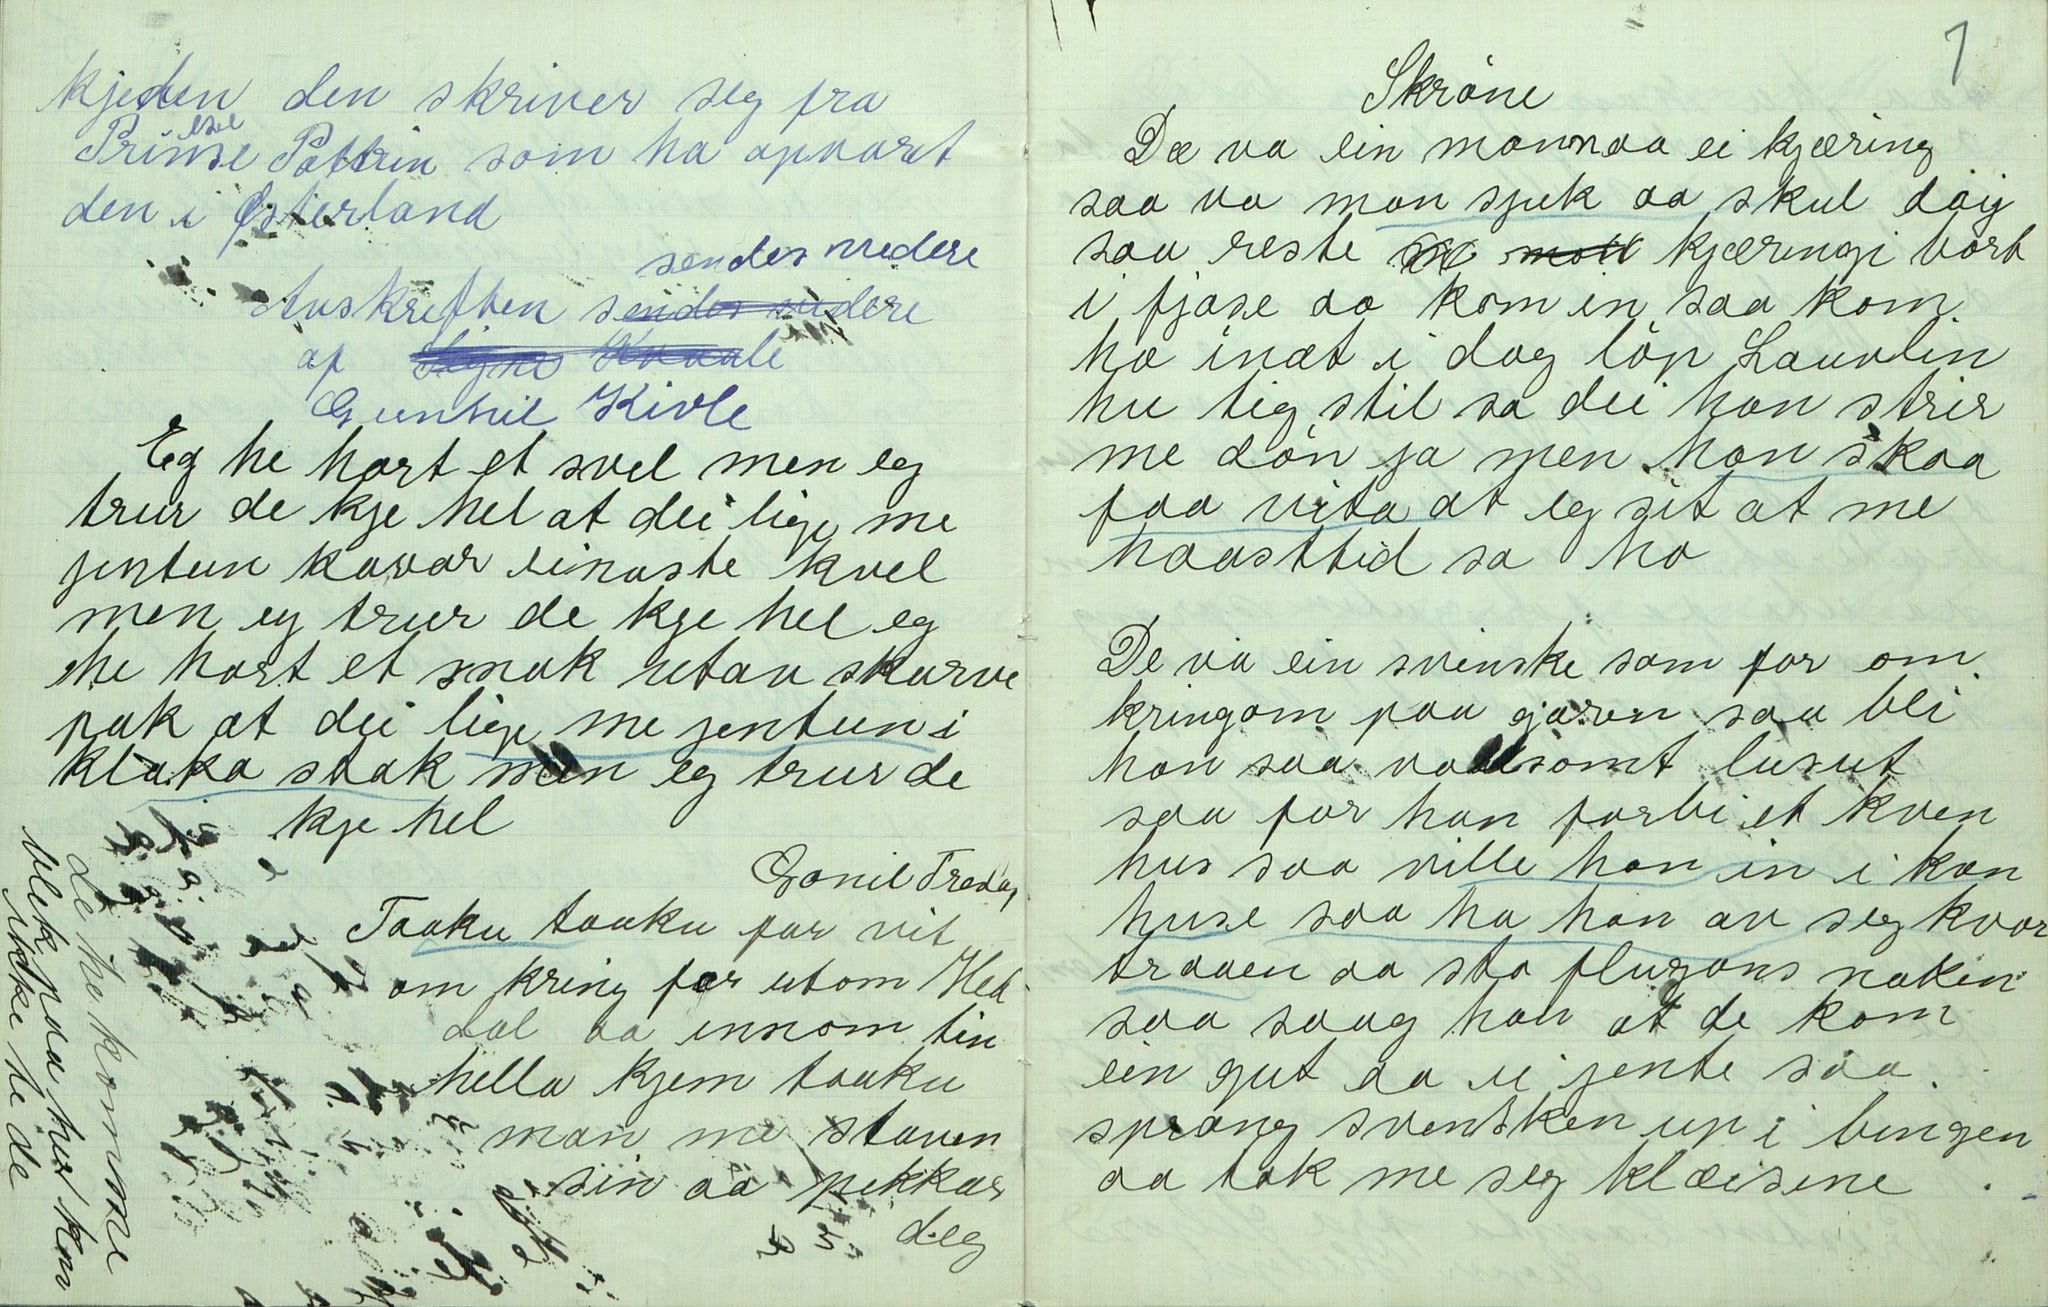 kjeden den skriver seg fra
Prinse Pattrin som ha opvart
den i Østerland
sendes videre
Avskriften sendes videre
af
Gunhil Kivle
Eg he hort et svel men eg
trur de kje hel at dei lige me
jentun kavar einaste kvel
men eg trur de kje hel eg
he hort et snak utav skarve
pak at dei lige me jentun i
klaka stak men eg trur de
kje hel
Gonil Tredag
Taaku taaku far vit
om kring far utom Hed
dal aa innom tin
hella kjem taaku
man me staven
sin aa pekkar
deg
de ha kommme
blek naa hir kem
ikke he de
7
Skrône
Dæ va ein mann aa ei kjæring
saa va man sjuk aa skul døiy
saa reste kjæringi bort
i fjøse aa kom in saa kom
ho inat i dag løp Lauvlin
hu tig stil sa dei han strir
me døn ja men han skaa
faa vita at eg sit at me
haasttid sa ho
De va ein svinske som for om
kringom paa garen saa bli
han saa vaalsomt lusut
saa for han forbi et kven
hus saa ville han in i kvn
huse saa ha han av seg kvar
traaen aa sto flugans nakin
saa saag han at de kom
ein gut aa ei jente saa
sprang svensken up i bingen
aa tok me seg klæisene